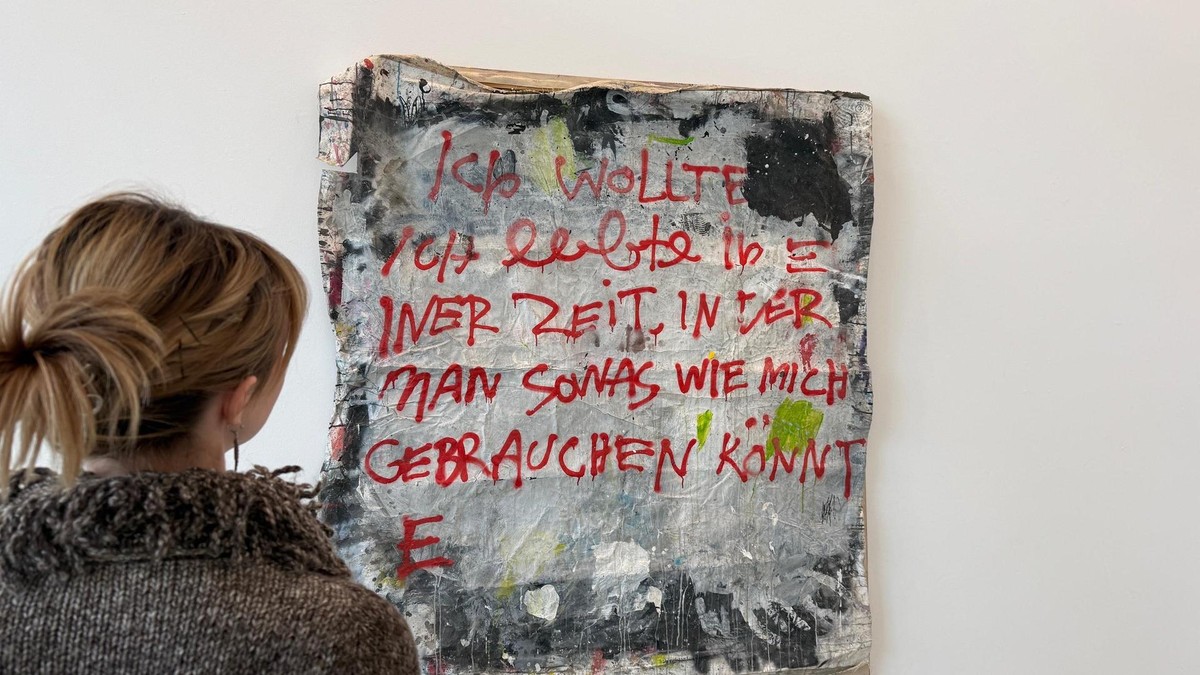 Ich WOLLTE
ICH lebte in E
INER ZEIT, IN DER
MAN SOWAS WIE MICH
GEBRAUCHEN KÖNNT
E